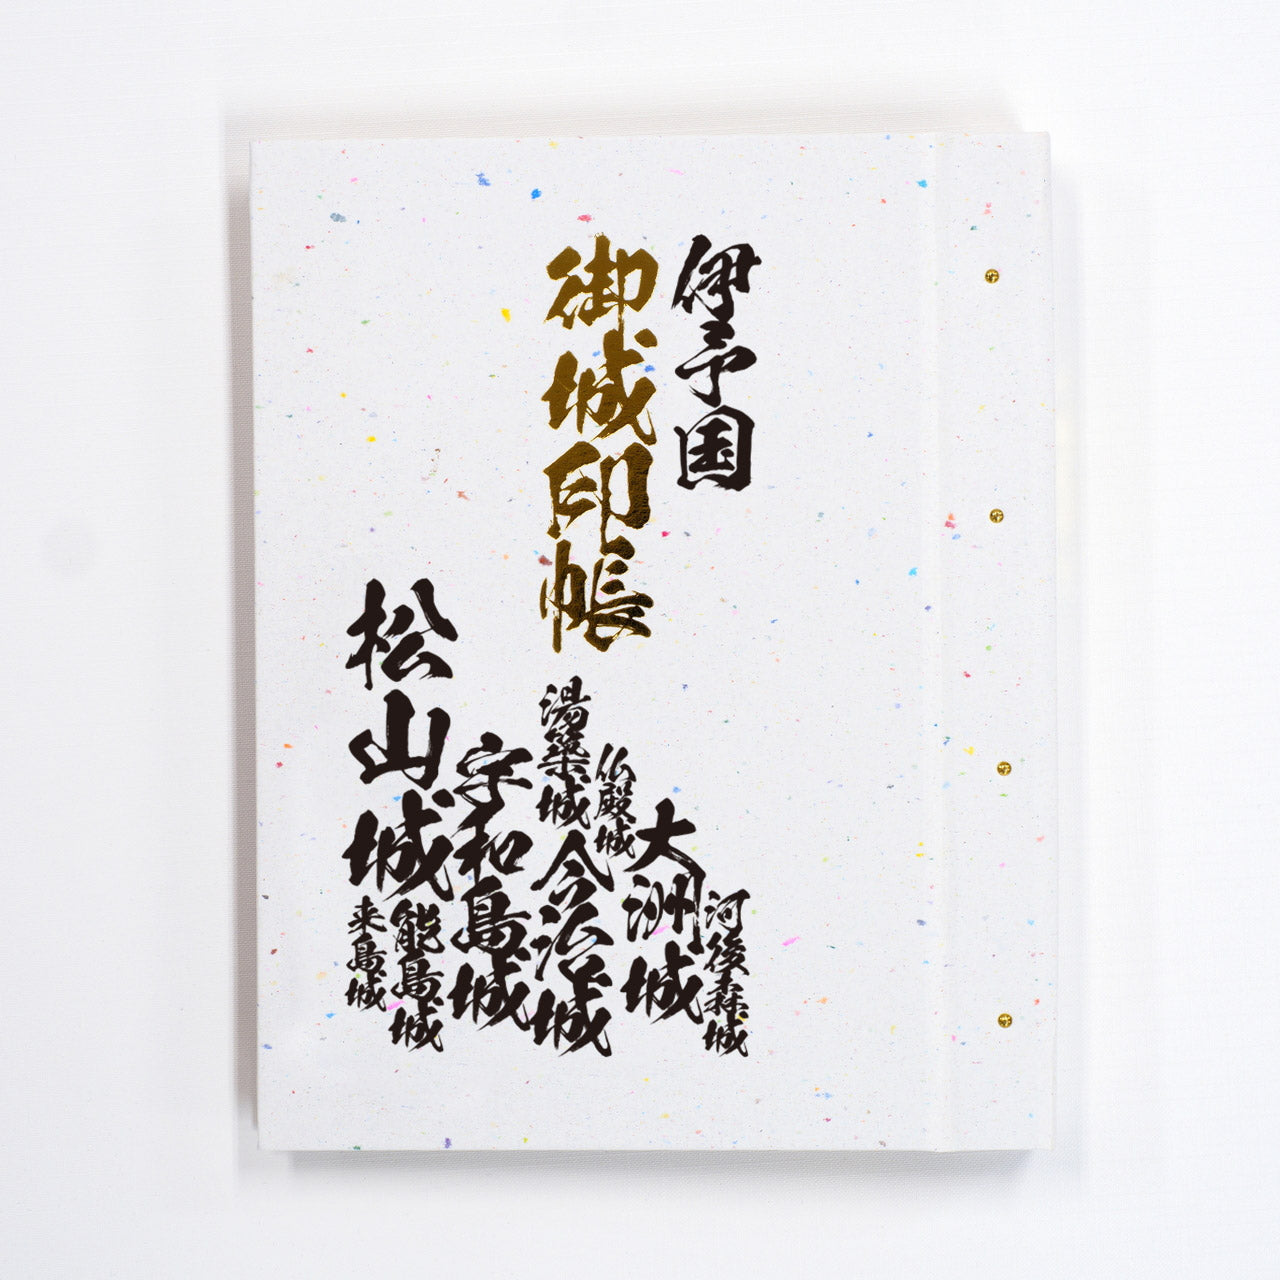 伊予国
御城印帳
河後森城
大洲城
仏殿城
湯築城
今治城
宇和島城
松山城
能島城
来島城